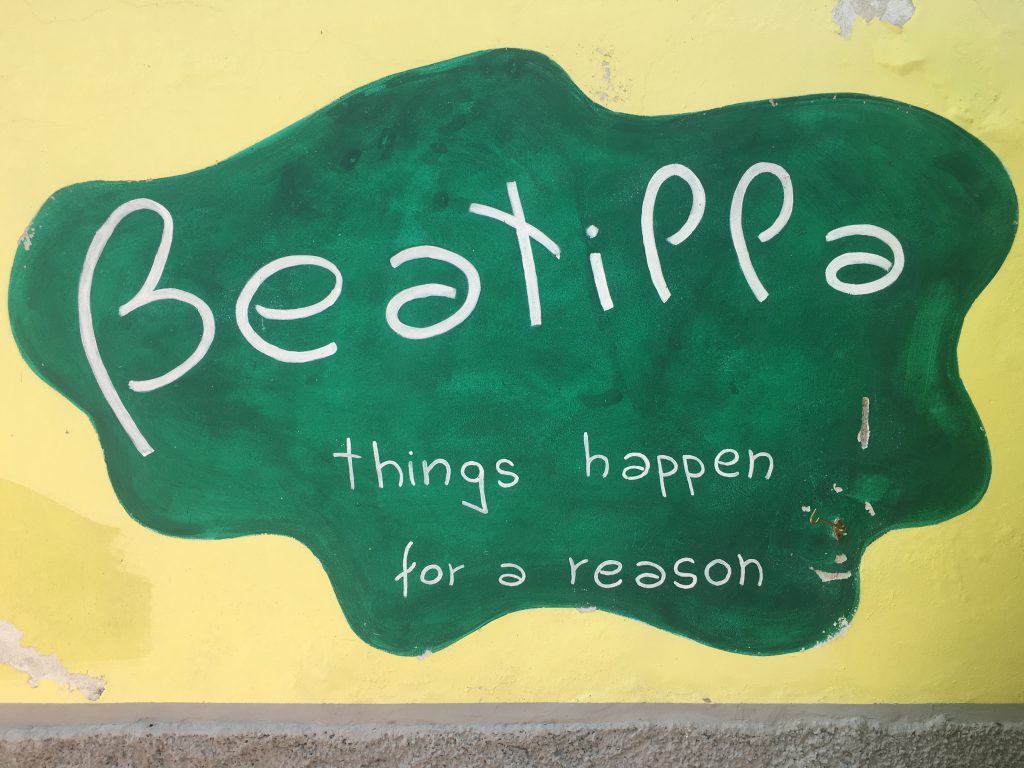 Beatippa
things happen
for a reason